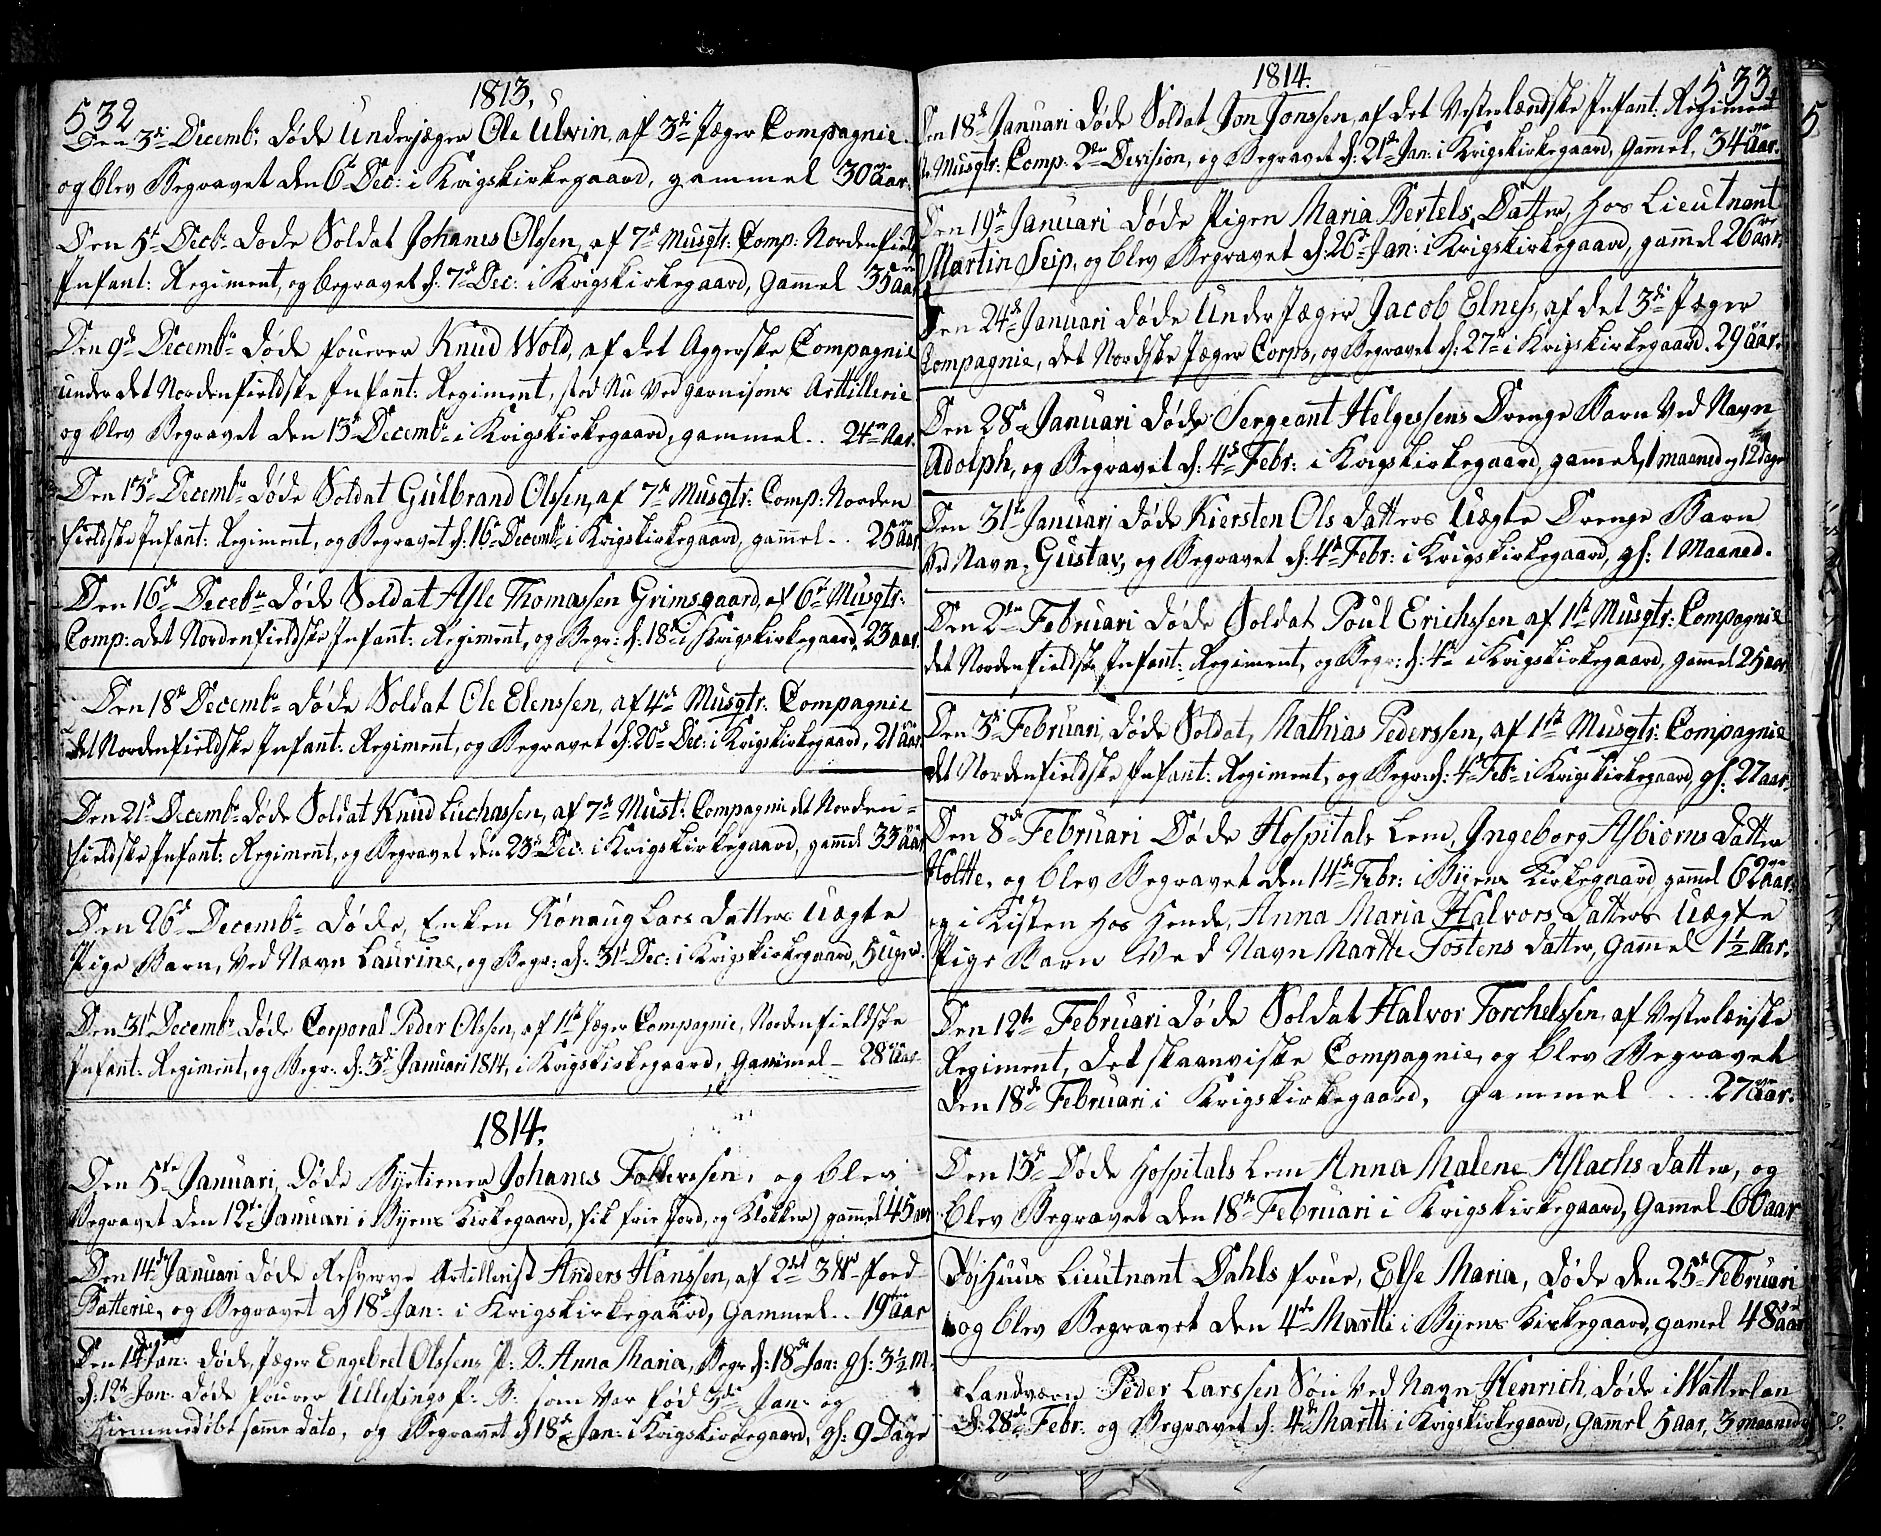 532
1813,
Den 3di Decemb: døde Underjæger Ole Ulvin, af 3di Jæger Compagnie
og blev Begravet den 6te Dec: i Krigskirkegaard, gammel 30 aar.
Den 5t Decb: døde Soldat Johanes Olssen, af 7de Musqtr: Comp: Nordenfield
Infant: Regiment, og begravet d: 7de Dec: i Krigskirkegaard, Gamel 35 aar
Den 9de Decemb: døde fourer Knud Wold, af det Aggerske Compagnie
under det Nordenfieldske Infant: Regiment, stod Nu Ved Garnisons Arttillerie
og blev Begravet den 13de Decemb: i Krigskirkegaard, gammel .. 24 Aar.
Den 13de Decemb: døde Soldat Gulbrand Olssen, af 7de Musqtr: Comp: Norden
fieldske Infant: Regiment, og Begravet d: 16de Decemb: i Krigskirkegaard, gamel .. 25 Aar
Den 16de Deceb: døde Soldat Asle Thomassen Grimsgaard, af 6te Musqtr:
Comp: det Nordenfieldske Infant: Regiment, og Begr: d: 18de i Krigskirkegaard, 23 aar.
Den 18de Decemb: døde Soldat Ole Elenssen, af 4de Musqtr: Compagnie
det Nordenfieldske Infant: Regiment, og Begravet d: 20de Dec: i Krigskirkegaard, 21 aar.
Den 21de Decemb: døde Soldat Knud Luchassen, af 7de Must: Compagnie det Norden=
fieldske Infant: Regiment, og Begravet den 23de Dec: i Krigskirkegaard, gamel 33 aar
Den 26de Decemb: døde, Enken Rønaug Lars Datters Uægte
Pige Barn, Ved Navn Laurine, og Begr: d: 31t Dec: i Krigskirkegaard, 5 uger.
Den 31t Decemb: døde Corporal Peder Olssen, af 1ste Jæger Compagnie, Nordenfieldske
Infant: Regiment, og Begr: d: 3di Januari 1814, i Krigskirkegaard, Gammel - 28 Aar
1814.
Den 5te Januari, døde Byetiener Johanes Tollevssen, og blev
Begravet den 12te Januari i Byens Kirkegaard, fik frie Jord, og Klokker) gammel 45 aar
Den 14de Januari døde Reserve Artillerist Anders Hanssen, af 2det 3 Pd ford-
Batterie, og Begravet d 18de Jan: i Krigskirkegaard, Gammel .. 19 aar
Den 14de Jan: døde, Jæger Engebret Olssens P: B: Anna Maria, Begr d: 18de Jan: gl: 3½ M.
d: 12te Jan: døde fourer Ullefings P: B: som Var fød 3di Jan: og
Hiemmedøbt samme dato, og Begravet d 18de Jan: i Krigskirkegaard, gl: 9 Dage
1814.
533
Den 18de Januari døde Soldat Jon Jonssen, af det Vesterlendske Infant: Regiment
Musqtr: Comp. 2den Devision, og Begravet d: 21de Jan: i Krigskirkegaard, Gammel, 34 aar.
Den 19de Januari døde Pigen Maria Bertels Datter, hos Lieutnant
Martin Seip, og blev Begravet d: 26de Jan: i Krigskirkegaard, gammel 26 aar.
Den 24de Januari døde Under Jæger Jacob Elness, af det 3di Jæger
Compagnie, det Nordske Jæger Corps, og Begravet d: 27de i Krigskirkegaard. 29 aar.
Den 28de Januari døde Sergeant Helgessens Drenge Barn Ved Navn
Adolph, og Begravet d: 4de Febr: i Krigskirkegaard, gammel, 1 maaned og 12 dage
Den 31te Januari døde Kiersten Ols Datters Uægte Drenge Barn
Ved Navn, Gustav, og Begravet d: 4de Febr: i Krigskirkegaard, gl: 1 Maaned.
Den 2den Februari døde Soldat Poul Erichssen af 1st Musqtr: Compagnie
det Nordenfieldske Infant: Regiment, og Begr: d: 4de i Krigskirkegaard, gamel 25 aar
Den 3di Februari, døde Soldat, Mathias Pederssen, af 1st Musqtr: Compagnie
det Nordenfieldske Infant: Regiment, og Begr: d: 4de Feb: i Krigskirkegaard, gl: 27 aar.
Den 8de Februari Døde Hospitals Lem, Ingeborg Asbiørns Datter
Holtte, og blev Begravet den 14de Febr: i Byens Kirkegaard gamel 62 aar.
og i Kisten hos hende, Anna Maria Halvors Datters Uægte
Pige Barn Ved Navn Martte Tostens Datter, Gammel 1½ Aar.
Den 12te Februari døde Soldat Halvor Torchelssen, af Vesterlenske
Regiment, det skaanviske Compagnie, og blev Begravet
den 18de Februari i Krigskirkegaard, Gammel ... 27 aar.
Den 13de Døde Hospitals Lem Anna Malene Aslachs Datter, og
blev Begravet den 18de Februari i Krigskirkegaard, Gamel 60 aar
Tøjhuus Lieutnant Dahls frue, Else Maria, døde den 25de Februari
og blev Begravet den 4de Martti i Byens Kirkegaard, gamel 48 aar
Landværn Peder Larssen Søn Ved Navn Henrich, døde i Watterlan
d: 28de Febr: og Begravet d: 4de Martti i Krigskirkegaard, Gamel 5 aar, 3 maaneder